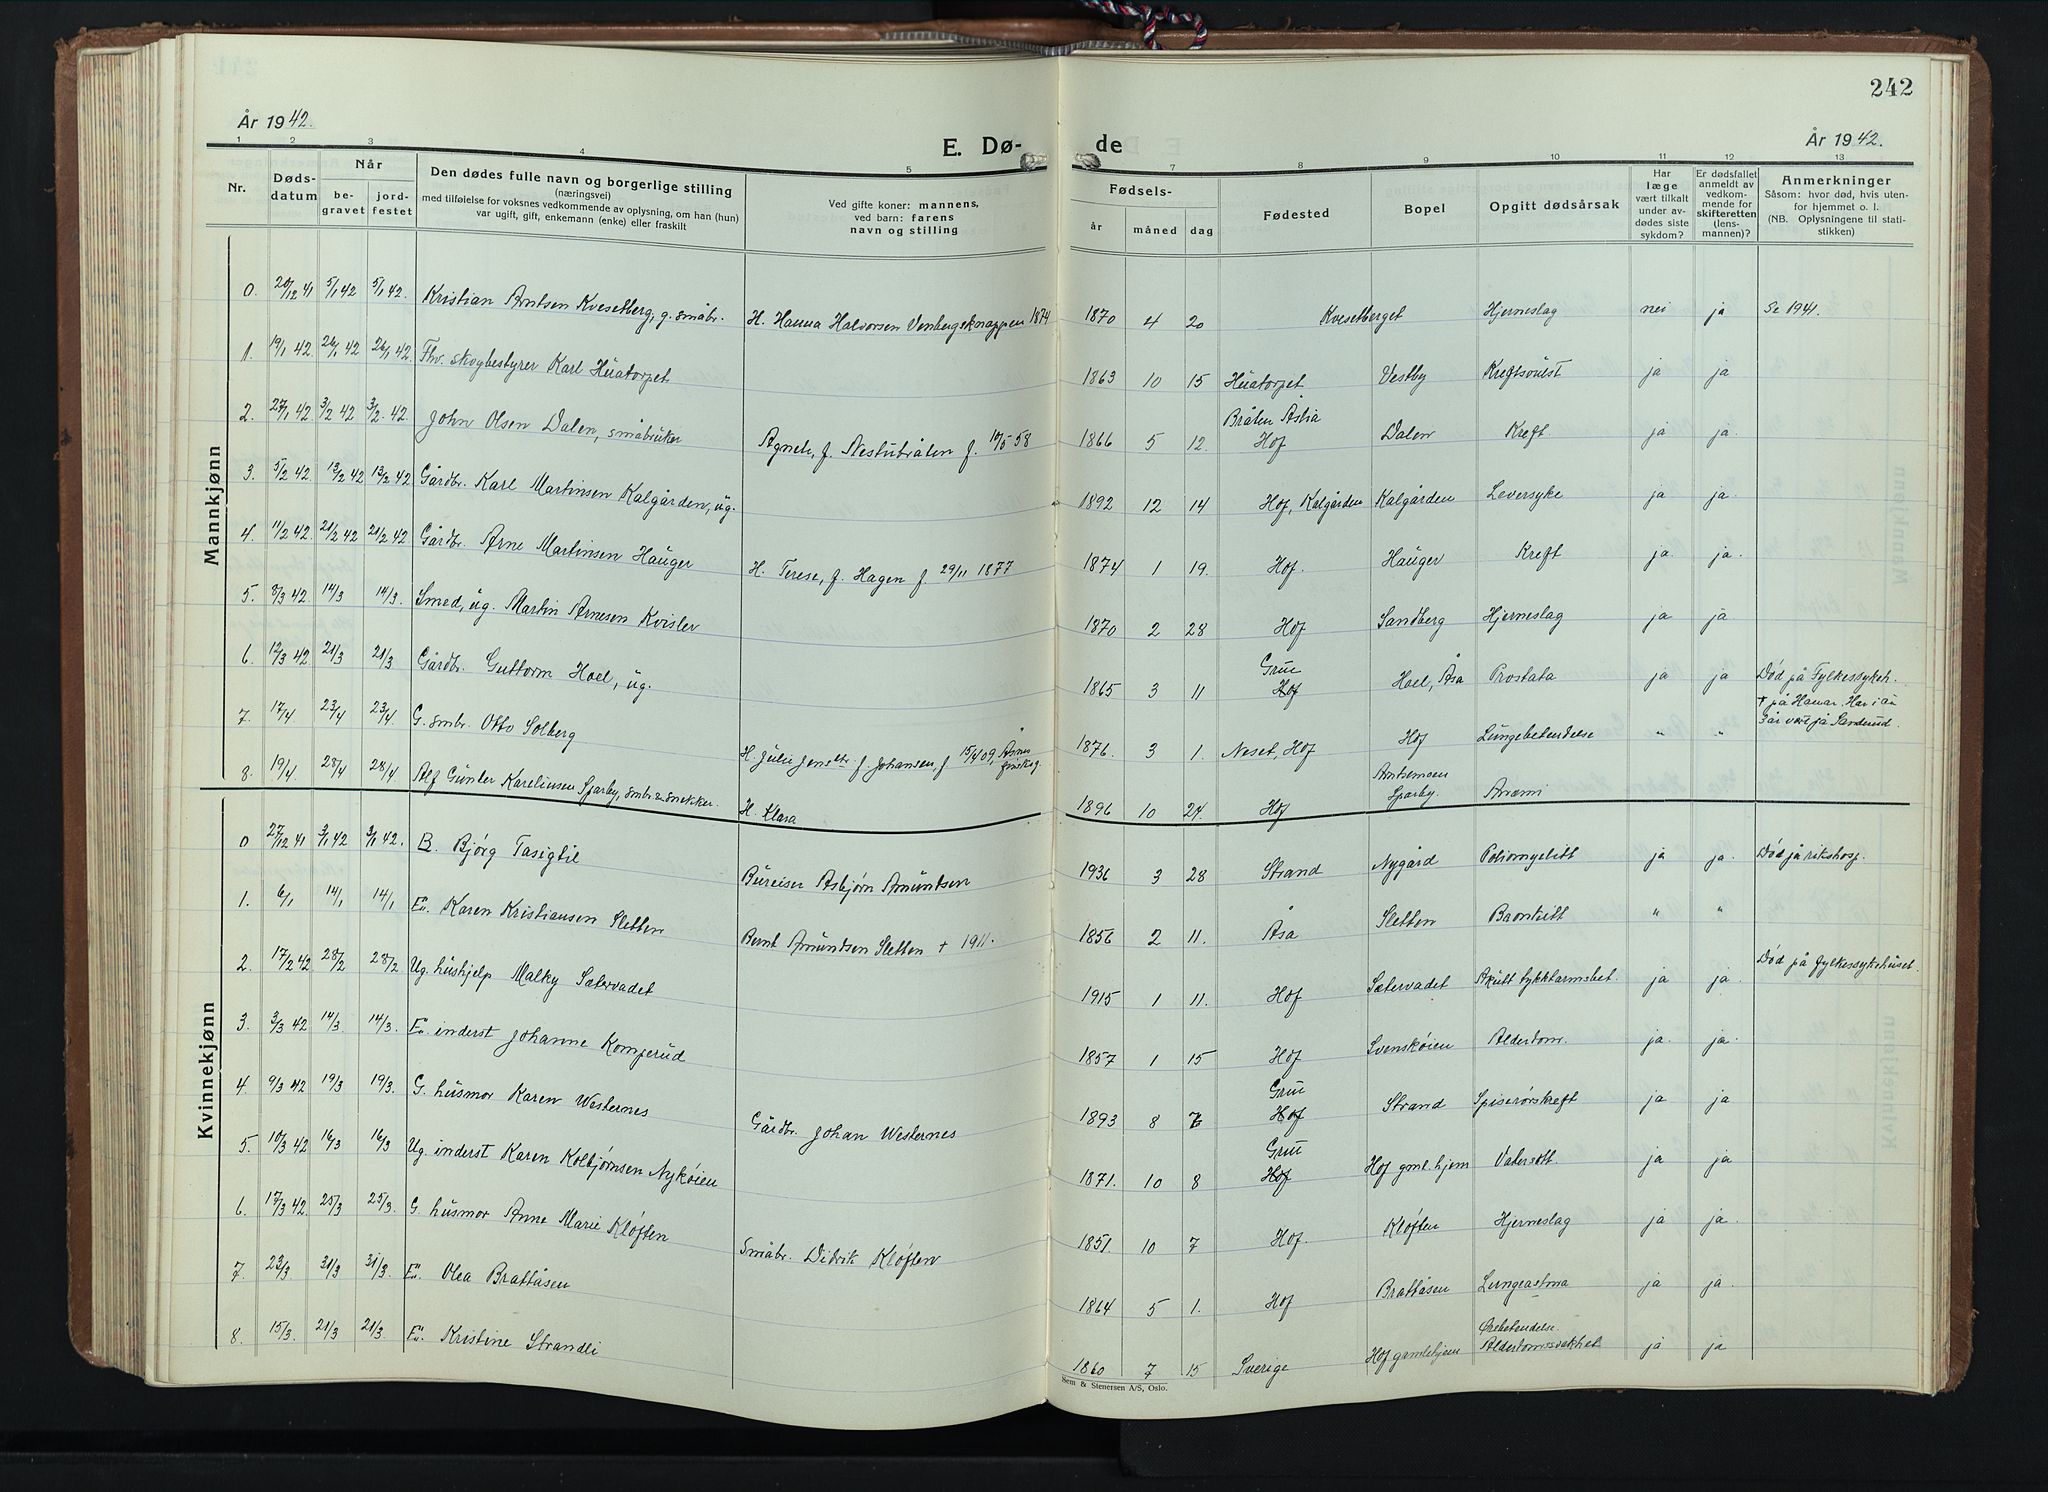 242
År 1942.
E. Dø-
de
År 1942.
1 2 3 4 5 7 8 9 10 11 12 13
Nr.
Døds-
datum
Når
be-
gravet
jord-
festet
Den dødes fulle navn og borgerlige stilling
(næringsvei)
med tilføielse for voksnes vedkommende av oplysning, om han (hun)
var ugift, gift, enkemann (enke) eller fraskilt
Ved gifte koner: mannens,
ved barn: farens
navn og stilling
Fødsels-
år måned dag
Fødested
Bopel
Opgitt dødsårsak
Har
læge
vært tilkalt
under av-
dødes siste
sykdom?
Er dødsfallet
anmeldt av
vedkom-
mende for
skifteretten
(lens-
mannen)?
Anmerkninger
Såsom: hvor død, hvis uten-
for hjemmet o. l.
(NB. Oplysningene til stati-
stikken)
Mannkjønn
0. 20/12 41 5/1 42 5/1 42. Kristian Arntsen Kvesetberg, g. småbr. H. Hanna Halvorsen Venbergsknappen 1874 1870 4 20 Kvesetberget Hjerneslag nei ja Se 1941.
1. 19/1 42 26/1 42 26/1 42. Fhv. skogbestyrer Karl Huatorpet 1863 10 15 Huatorpet Vestby Kreftsvulst ja ja
2. 27/1 42 3/2 42 3/2. 42. John Olsen Dalen, småbruker Agnete, f. Nestubråten f. 10/5 58 1866 5 12. Bråten Åstia
Hof Dalen Kreft ja ja.
3. 5/2 42 13/2 42 13/2 42 Gårdbr. Karl Martinsen Kalgården, ug. 1892 12 14 Hof, Kalgården Kalgården Leversyke ja ja.
4. 11/2 42. 21/2 42 21/2 42 Gårdbr. Arne Martinsen Hauger H. Terese, f. Hagen f. 29/11 1877 1874 1 19. Hof. Hauger Kreft ja. ja.
5. 8/3 42. 14/3 14/3. Smed, ug. Martin Arnesen Kvisler 1870 2 28 Hof Sandberg Hjerneslag ja ja
6. 12/3 42 21/3 21/3 Gårdbr. Guttorm Hoel, ug. 1865 3 11 Grue
Hof Hoel, Åsa Prostata ja ja Død på Fylkessykeh.
7. 17/4 23/4 23/4. G. smbr. Otto Solberg H. Julie Jensdtr. f. Johansen, f 15/4 09, Åsnes
finskog. 1876. 3 1. Neset, Hof Hof Lungebetendelse " " † på Hamar. Har i en
3 år vært på Sanderud.
8. 19/4. 28/4 28/4. Alf Gunler Kareliusen Sparby, smbr. & snekker. H. Klara 1896 10 24. Hof Arntsemoen
Sparby. Anæmi
Kvinnekjønn
0 27/12 41 3/1 42 3/1 42. B. Bjørg Tasigtil Bureiser Asbjørn Amundsen 1936 3 28 Strand Nygård Poliomyelitt ja ja. Død på rikshosp.
1. 6/1 14/1 14/1 Eu. Karen Kristiansen Sletten Bernt Amundsen Sletten † 1911. 1856 2 11. Åsa Sletten Bronkitt " "
2. 17/2 42 28/2 28/2 Ug. hushjelp Malky Sætervadet 1915 1 11. Hof Sætervadet Akutt tykktarmsbet. ja ja. Død på fylkessykehuset.
3. 3/3 42 14/3 14/3. Eu. inderst Johanne Komperud 1857 1 15 Hof Svenskøien Alderdom. ja. ja.
4 9/3 42 19/3 19/3. G. husmor Karen Westernes Gårdbr. Johan Westernes 1893 8 Grue
Hof Strand Spiserørskreft ja ja
5. 10/3 42 16/3 16/3 Ug. inderst Karen Kolbjørnsen Nykøien 1871. 10 8 Grue
Hof Hof gaml. hjem Vatersott. ja ja
6. 17/3 42 25/3 25/3. G. husmor Anne Marie Kløften Småbr. Didrik Kløften 1851. 10 7 Hof. Kløften Hjerneslag ja ja.
7. 23/3 31/3 31/3. Eu. Olea Bråttåsen 1864 5 1. Hof Bråttåsen Lungeastma ja ja.
8. 15/3. 21/3 21/3. Eu. Kristine Strandli 1860 7 15 Sverige Hof gamlehjem Ørebetendelse.
Alderdomssvakhet ja ja
Sem & Stenersen A/S, Oslo.